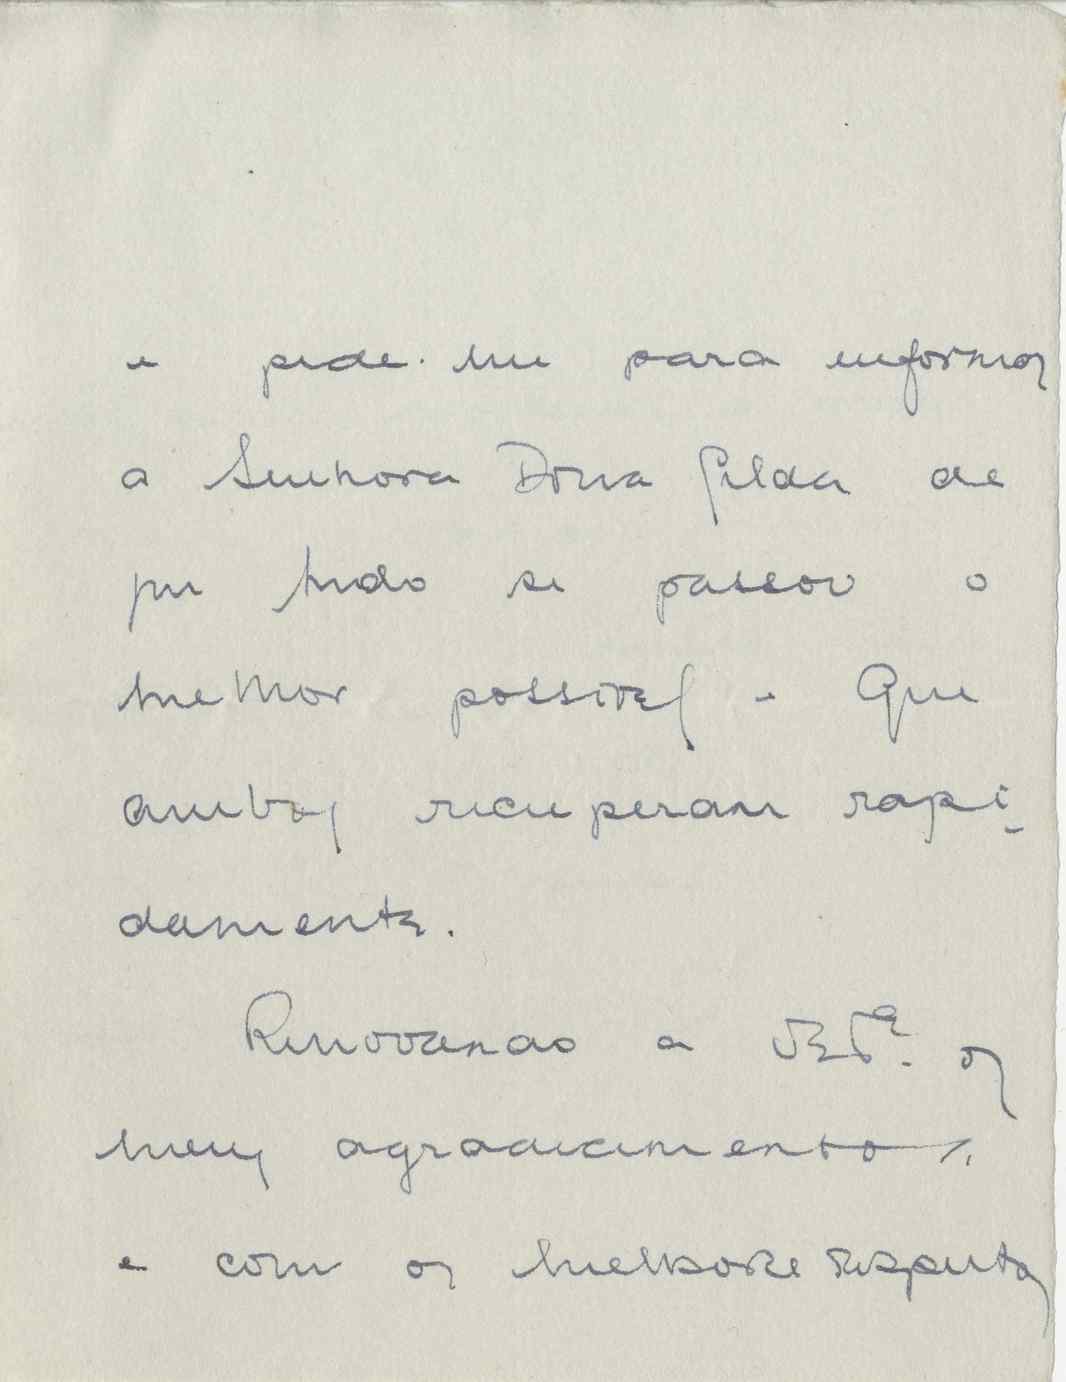 e pede-me para informar
a Senhora Dona Gilda de
que tudo se passou o
melhor possivel e que
ambos recuperam rapi-
damente.
Renovando a V. Exª. os
meus agradecimentos,
e com os melhores respeitos